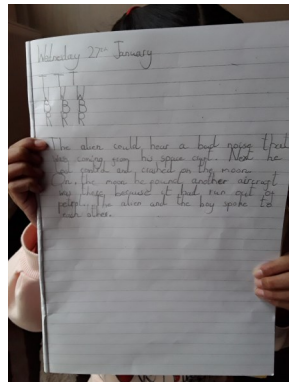 Wednesday 27th January
T T T
W W W
B B B
R R R
The alien could hear a bad noise that
was coming from his space craft. Next he
lost control and crashed on the moon.
On the moon he found another aircraft
was there because it had run out of
petrol. The alien and the boy spoke to
each other.